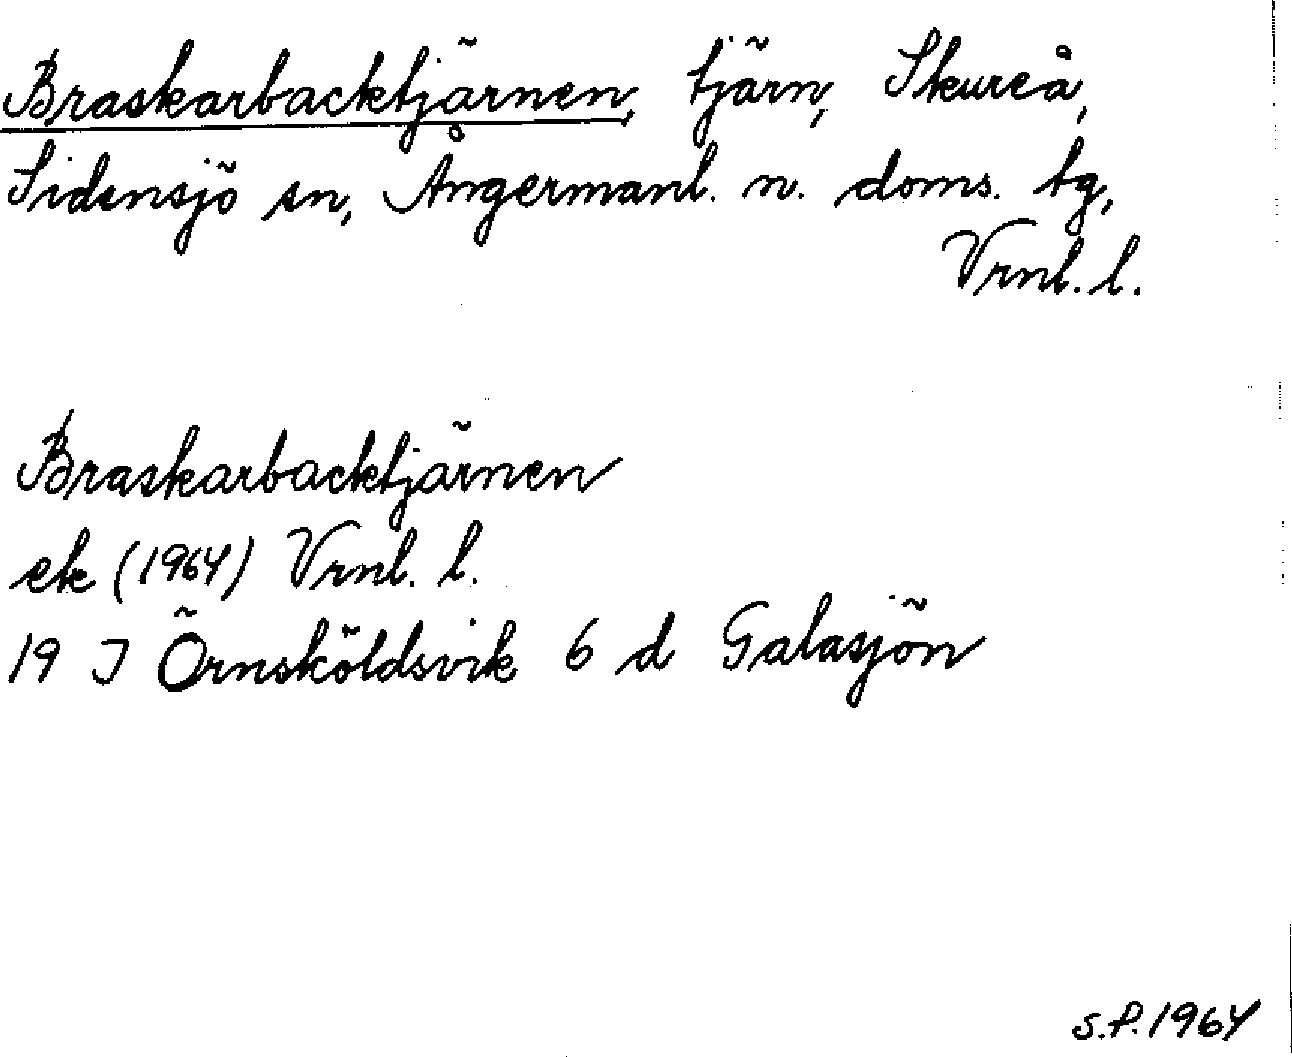 Braskarbacktjärnen, tjärn, Skureå,
Sidensjö sn, Ångermanl. n. doms. tg,
Vrnl. l.
Braskarbacktjärnen
ek (1964) Vrnl. l.
19 J Örnsköldsvik 6 d Galasjön
S.P. 1964